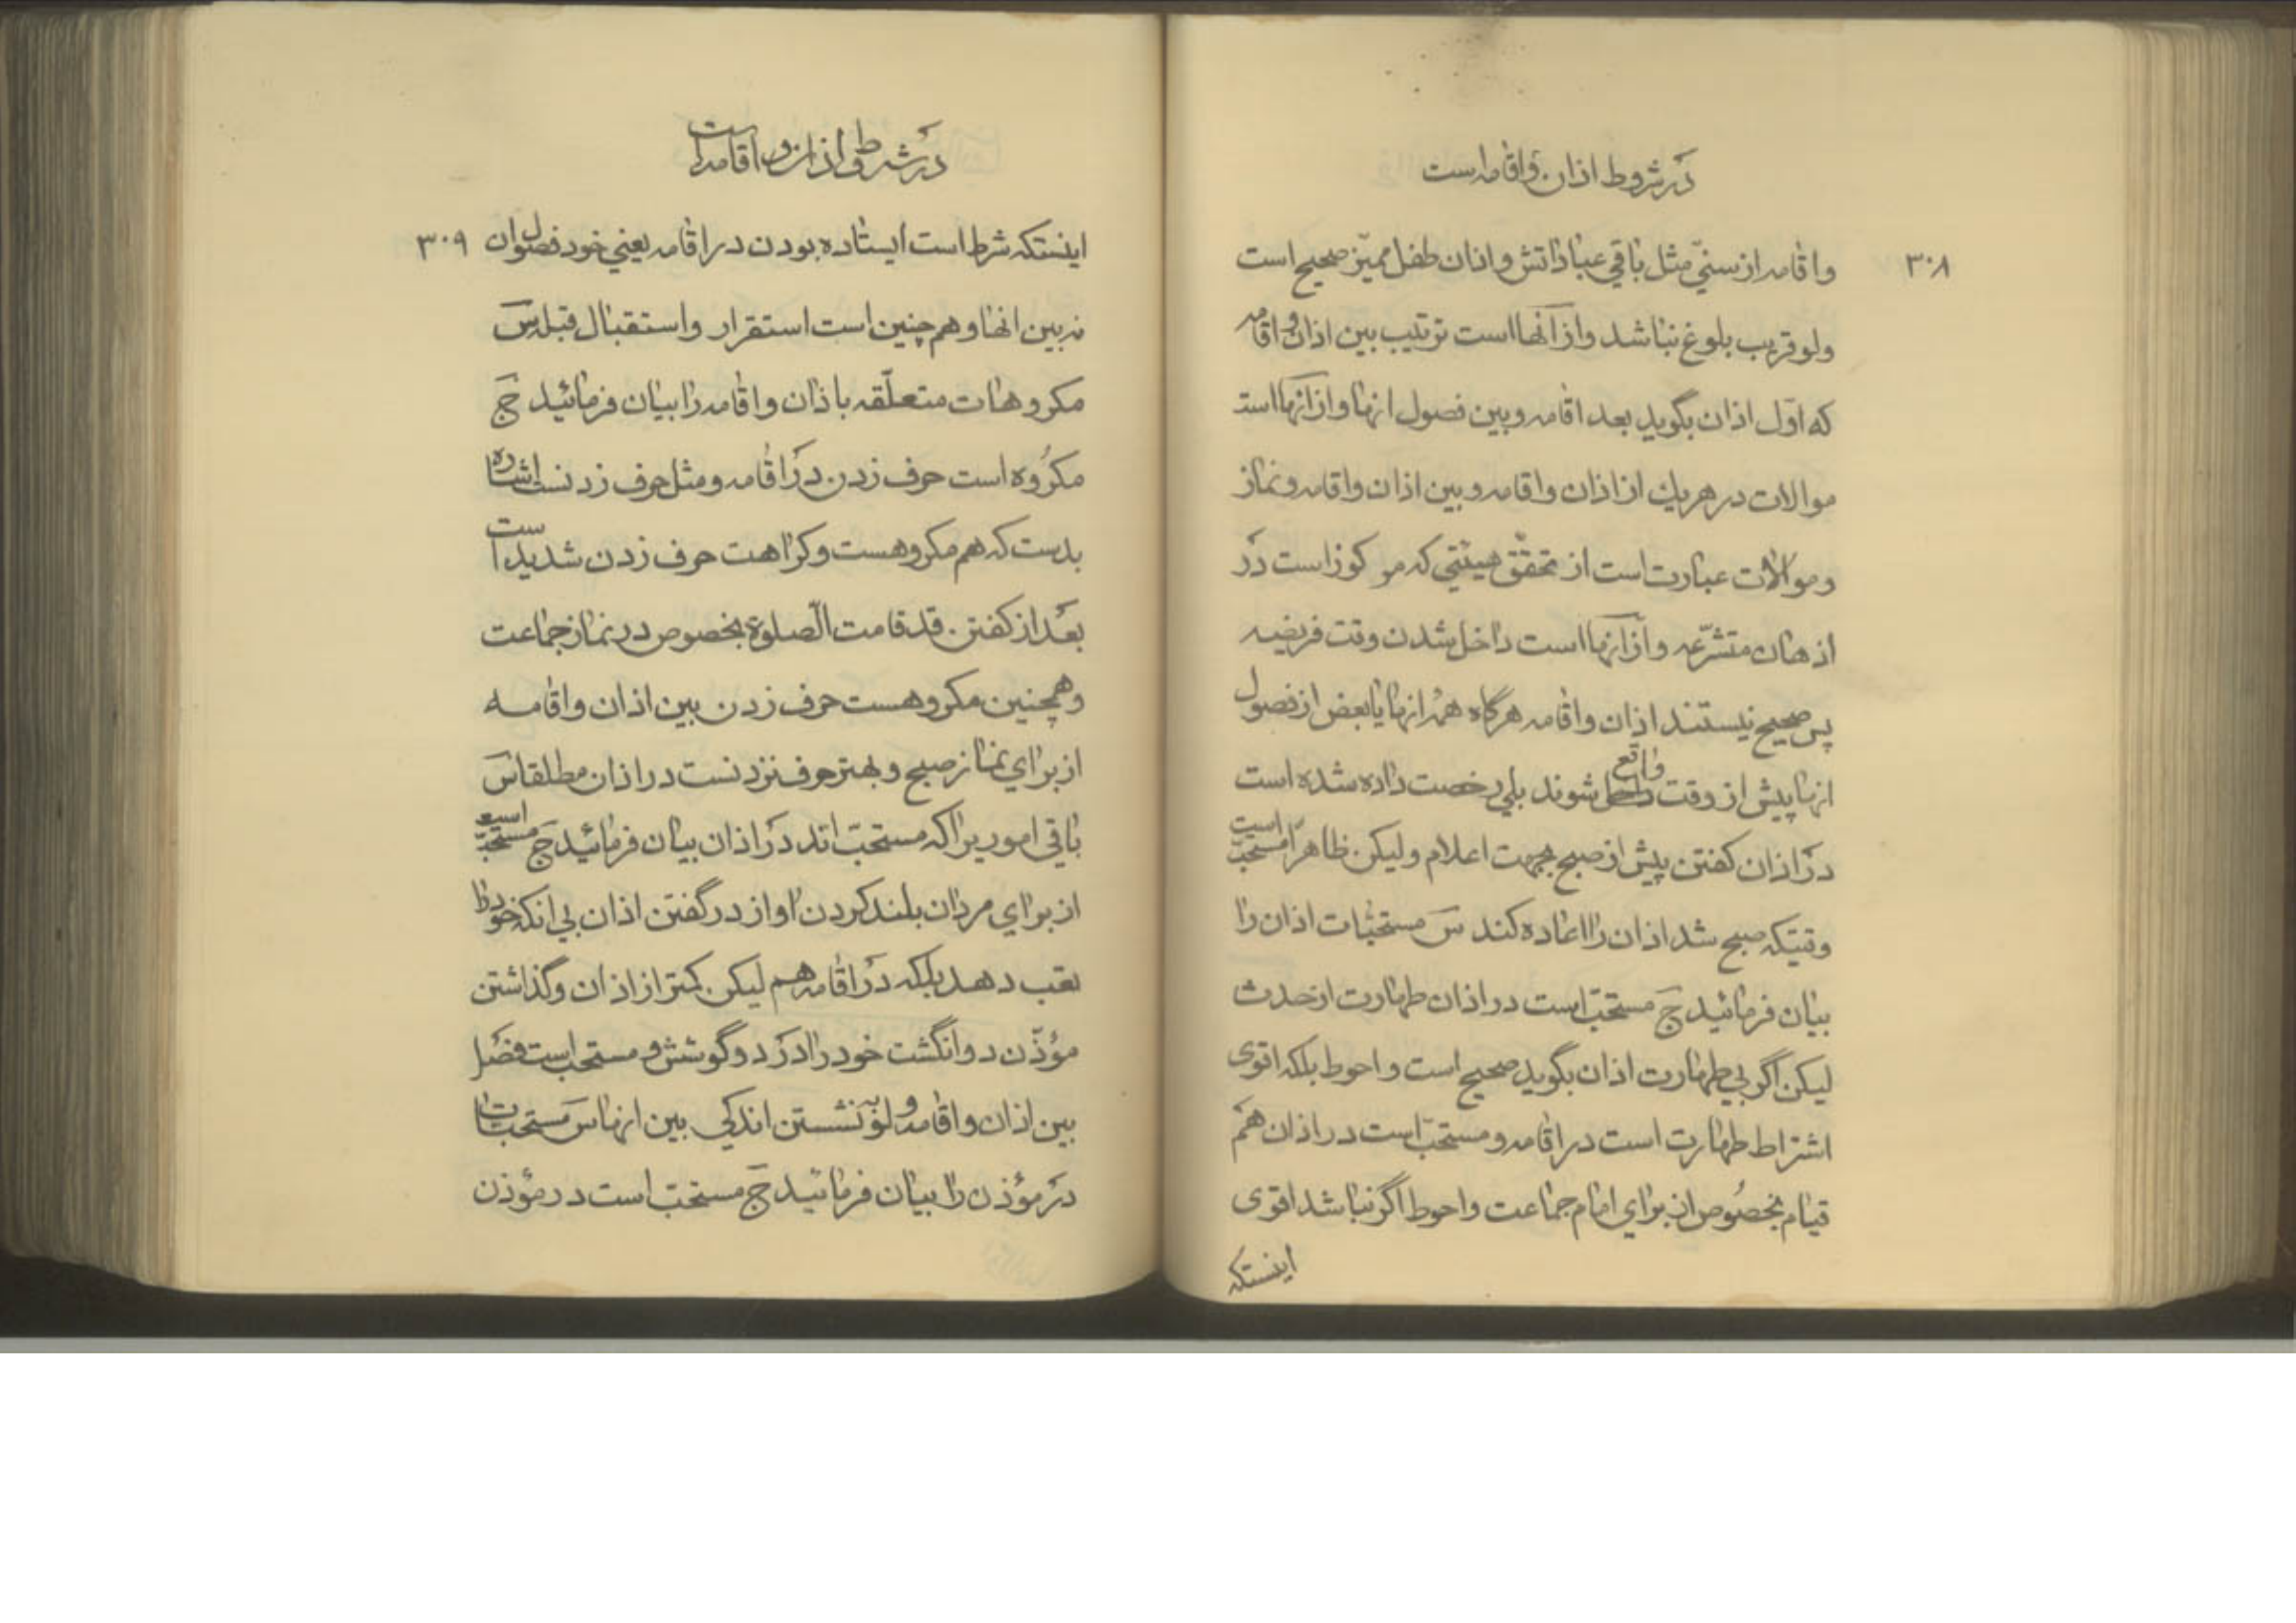 در شروط اذان و اقامه است
۳۰۸
واقامه از سنّی مثل باقی عباداتش و اذان طفل ممیّز صحیح است
ولو قریب بلوغ نباشد و از آنها است ترتیب بین اذان و اقامه
که اوّل اذان بگوید بعد اقامه و بین فصول انها و از انها است
موالات در هریك از اذان واقامه و بین اذان واقامه و نماز
و موالات عبارت است از تحقّق هیئتی که مرکوز است در
اذهان متشرّعه و از انها است داخل شدن وقت فریضه
پس صحیح نیستند اذان واقامه هرگاه همۀ انها یا بعض از فصول
انها پیش از وقت واقع شوند بلی رخصت داده شده است
در اذان گفتن پیش از صبح بجهت اعلام ولیکن ظاهرًا مستحبّ است
وقتیکه صبح شد اذان را اعاده کند س مستحبّات اذان را
بیان فرمائید ج مستحبّ است در اذان طهارت از حدث
لیکن اگر بی طهارت اذان بگوید صحیح است و احوط بلکه اقوی
اشتراط طهارت است در اقامه و مستحبّ است در اذان هم
قیام بخصوص از برای امام جماعت و احوط اگر نباشد اقوی
اینستکه
در شروط اذان و اقامه است
۳۰۹
اینستکه شرط است ایستاده بودن در اقامه یعنی خود فصول ان
نه بین انها و هم چنین است استقرار و استقبال قبله س
مکروهات متعلّقه باذان واقامه را بیان فرمائید ج
مکروه است حرف زدن در اقامه و مثل حرف زدنست اشاره
بدست که هم مکروهست و کراهت حرف زدن شدید است
بعد از گفتن قد قامت الصلوة بخصوص در نماز جماعت
و همچنین مکروهست حرف زدن بین اذان و اقامه
از برای نماز صبح و بهتر حرف نزدنست در اذان مطلقا س
باقی اموریرا که مستحبّ اند در اذان بیان فرمائید ج مستحبّ است
از برای مردان بلند کردن اواز در گفتن اذان بی انکه خود را
تعب دهد بلکه در اقامه هم لیکن کمتر از اذان و گذاشتن
مؤذّن دو انگشت خود را در دو گوشش و مستحب است فصل
بین اذان واقامه ولو به نشستن اندکی بین انها س مستحبّات
در مؤذن را بیان فرمائید ج مستحبّ است در مؤذن